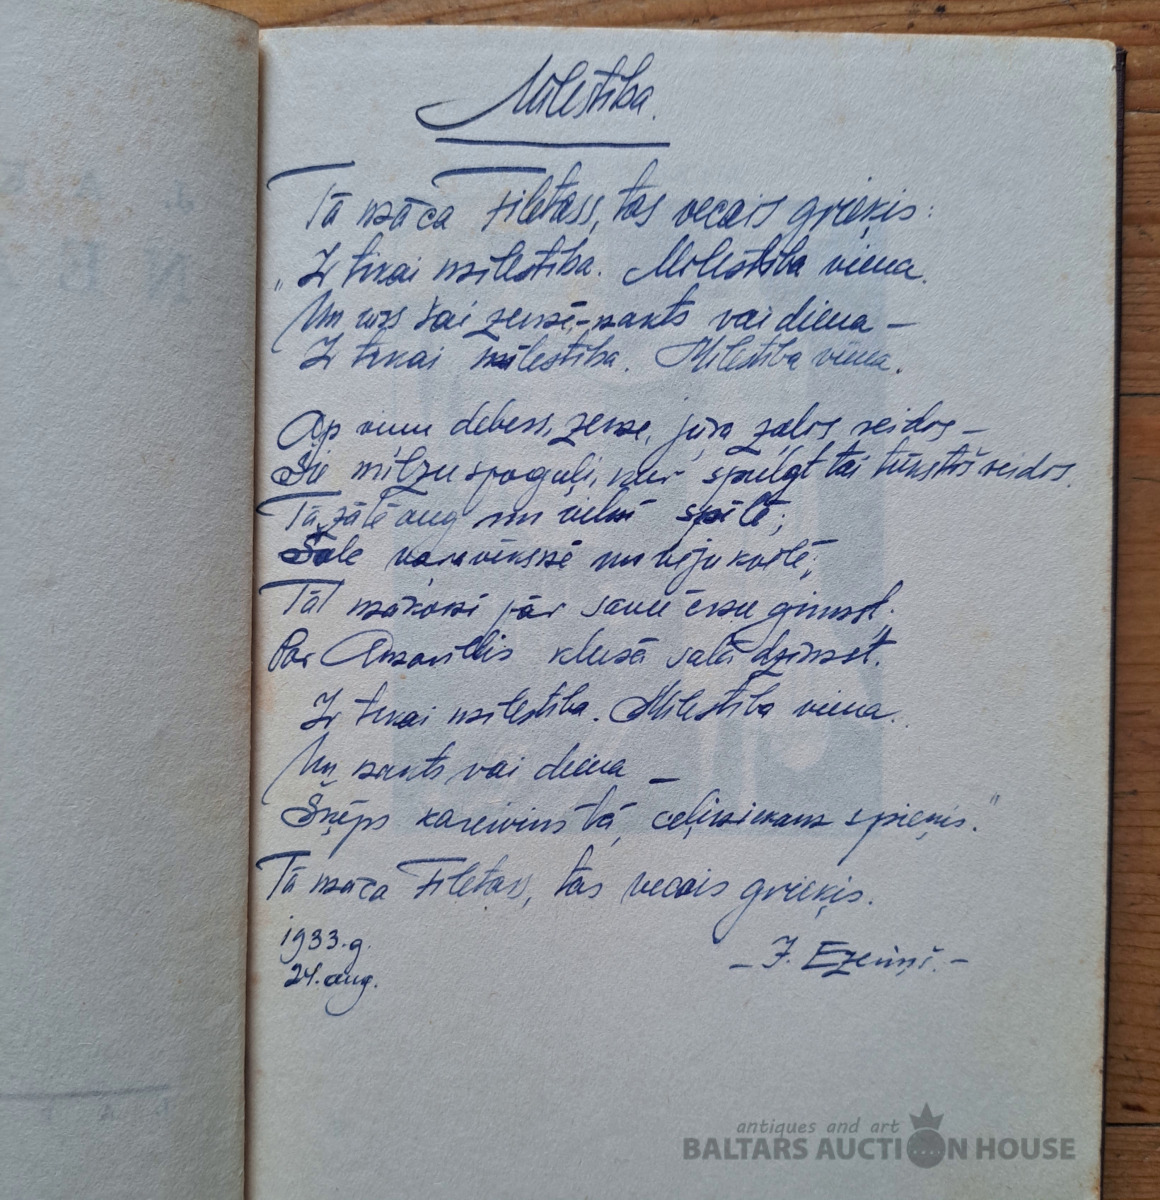 Mīlestība.
Tā māca Filetass, tas vecais grieķis:
„Ir tikai mīlestība. Mīlestība viena.
Un uz šai zemē – nakts vai diena –
Ir tikai mīlestība. Mīlestība viena.
Ap viņu debess, zeme, jūra zaļos veidos –
Šie milzu spoguļi, kur spulgt tai tūkstoš veidos.
Tā zālē aug un vilnī spēlē;
Šale varavīksnē un vēju kvēlē;
Tā mākoņi pār savu ēnu gimst;
Par Amarillis klusā salā dzimst.
Ir tikai mīlestība. Mīlestība viena.
Un nakts vai diena –
Šķēps kareivim tā, ceļiniekam spieķis."
Tā māca Filetass, tas vecais grieķis.
1933.g.
24. aug.
– J. Ezeriņš. –
antiques and art
BALTARS AUCTION HOUSE